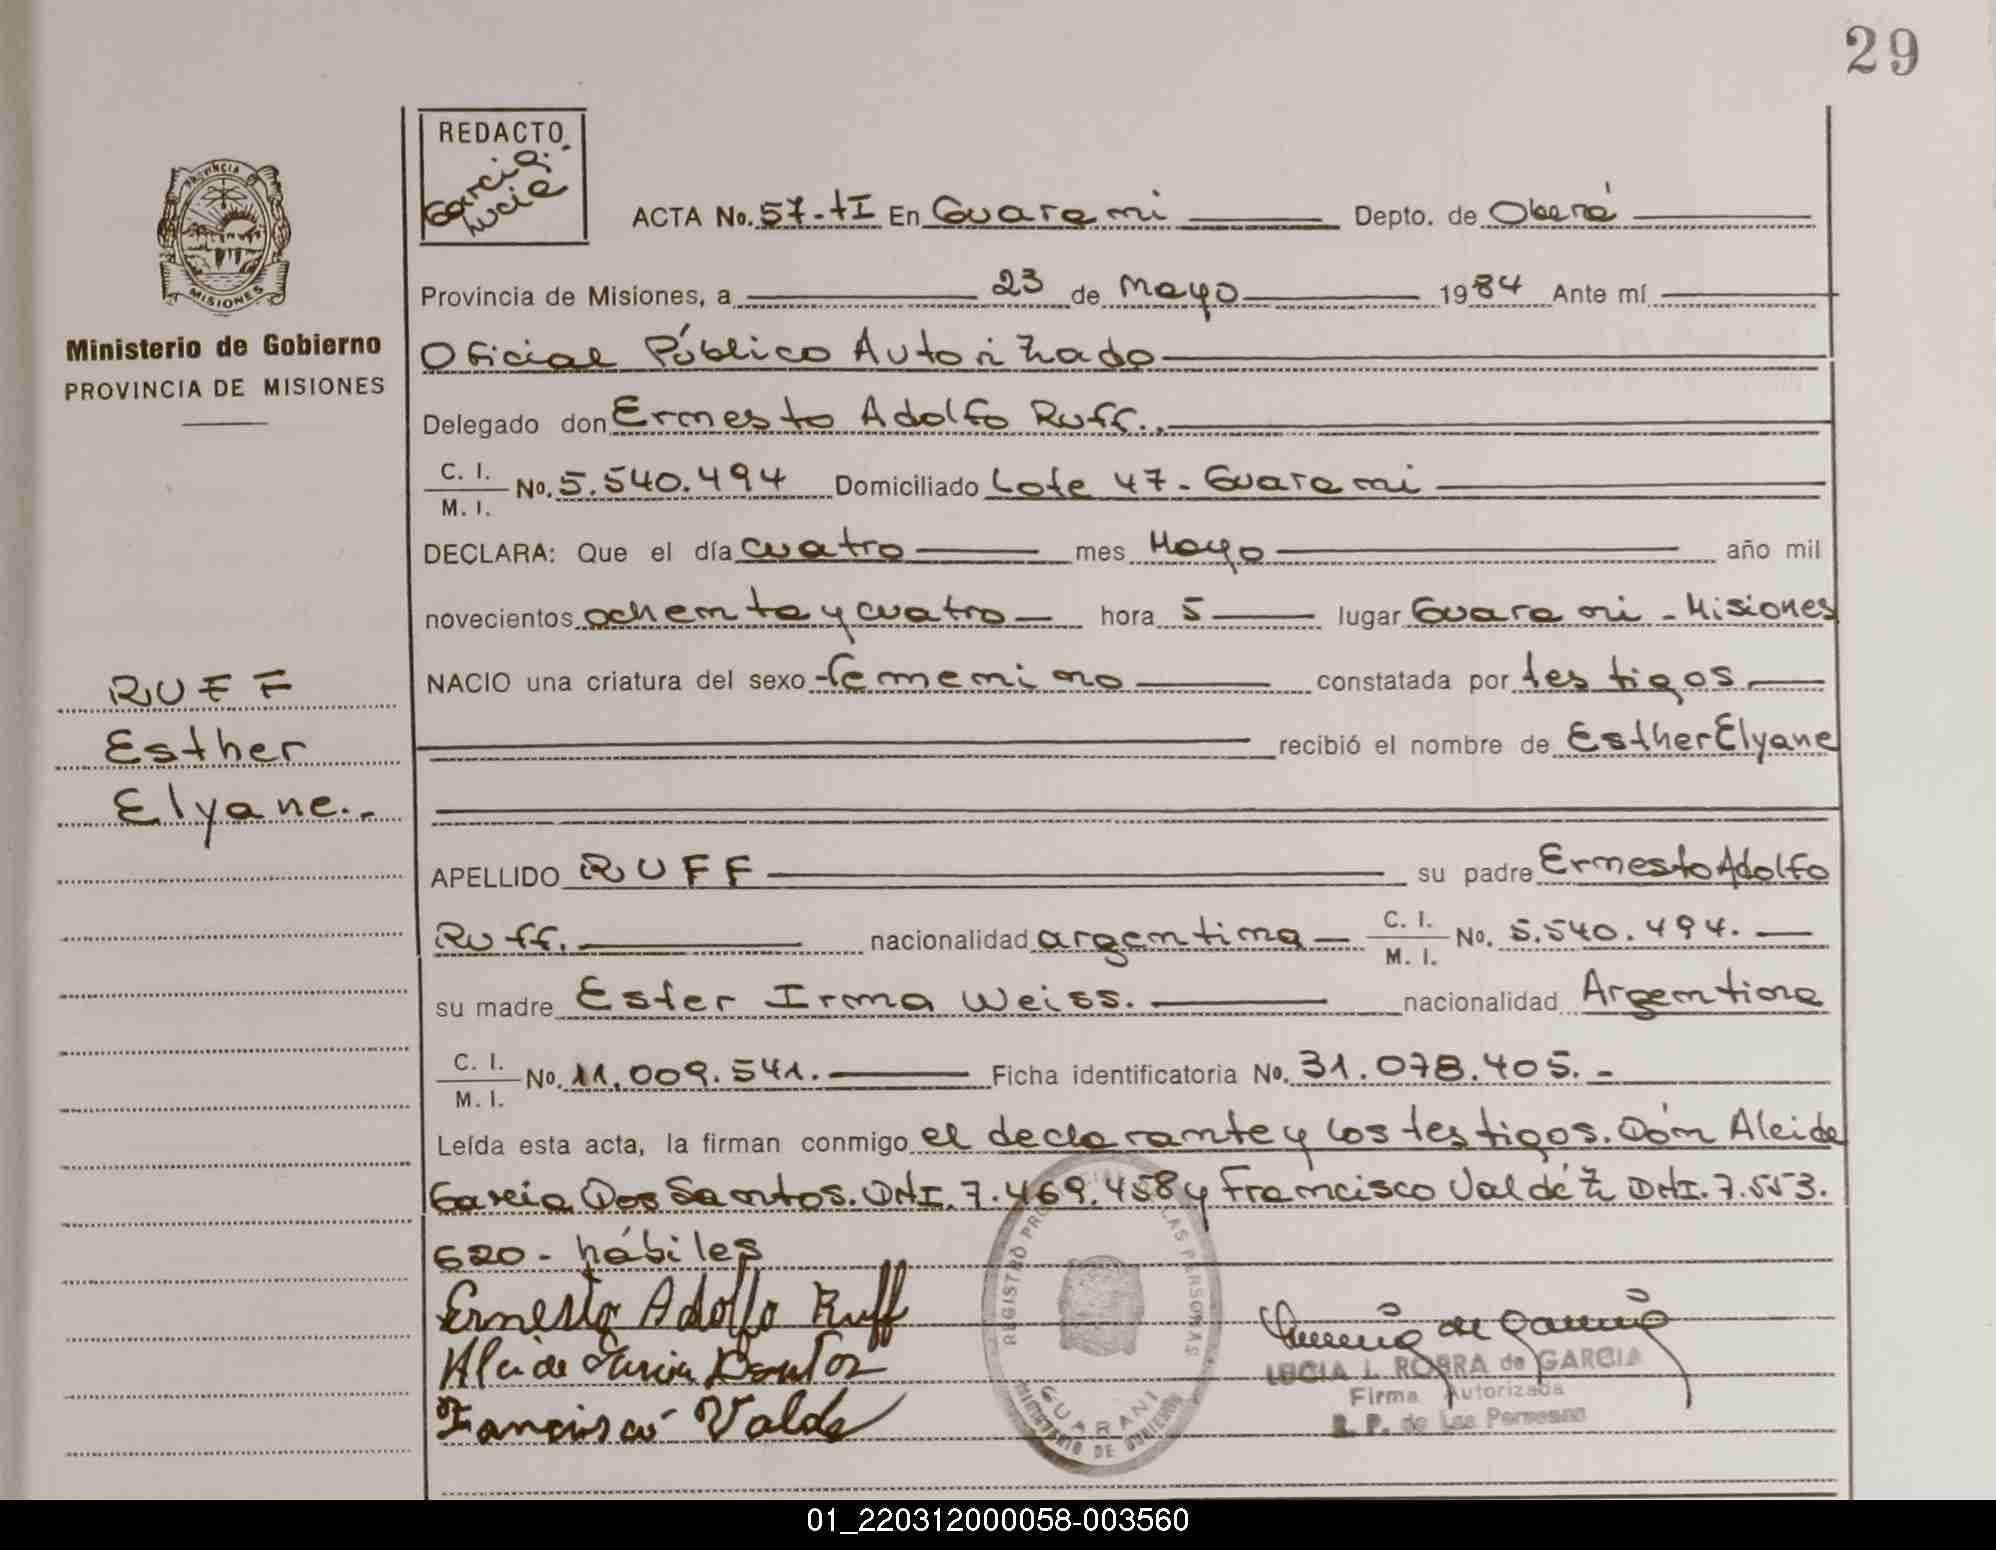 29
REDACTO
Garcia.
Lucia
PROVINCIA
MISIONES
Ministerio de Gobierno
PROVINCIA DE MISIONES
RUFF
Esther
Elyane.-
ACTA No. 57-tI En Guarani Depto. de Oberá
Provincia de Misiones, a 23 de Mayo 1984 Ante mí
Oficial Público Autorizado
Delegado don Ernesto Adolfo Ruff..
C. I.
M. I. No. 5.540.494 Domiciliado Lote 47 - Guarani
DECLARA: Que el día cuatro mes Mayo año mil
novecientos ochenta y cuatro hora 5 lugar Guarani - Misiones
NACIO una criatura del sexo femenino constatada por testigos
recibió el nombre de Esther Elyane
APELLIDO RUFF su padre Ernesto Adolfo
Ruff. nacionalidad argentina C. I. M. I. No. 5.540.494.
su madre Ester Irma Weiss. nacionalidad Argentina
C. I.
M. I. No. 11.009.541. Ficha identificatoria No. 31.078.405. -
Leída esta acta, la firman conmigo el declarante y los testigos. Dón Alcide
Garcia Dos Santos. DNI. 7.469.458 y Francisco Valdéz DNI. 7.553.
620 - hábiles
Ernesto Adolfo Ruff
Alcide Garcia Santos
Francisco Valde
REGISTRO PROVINCIAL DE LAS PERSONAS
GUARANI
MINISTERIO DE GOBIERNO
LUCIA I. ROBRA de GARCIA
Firma Autorizada
R. P. de Las Personas
01_220312000058-003560